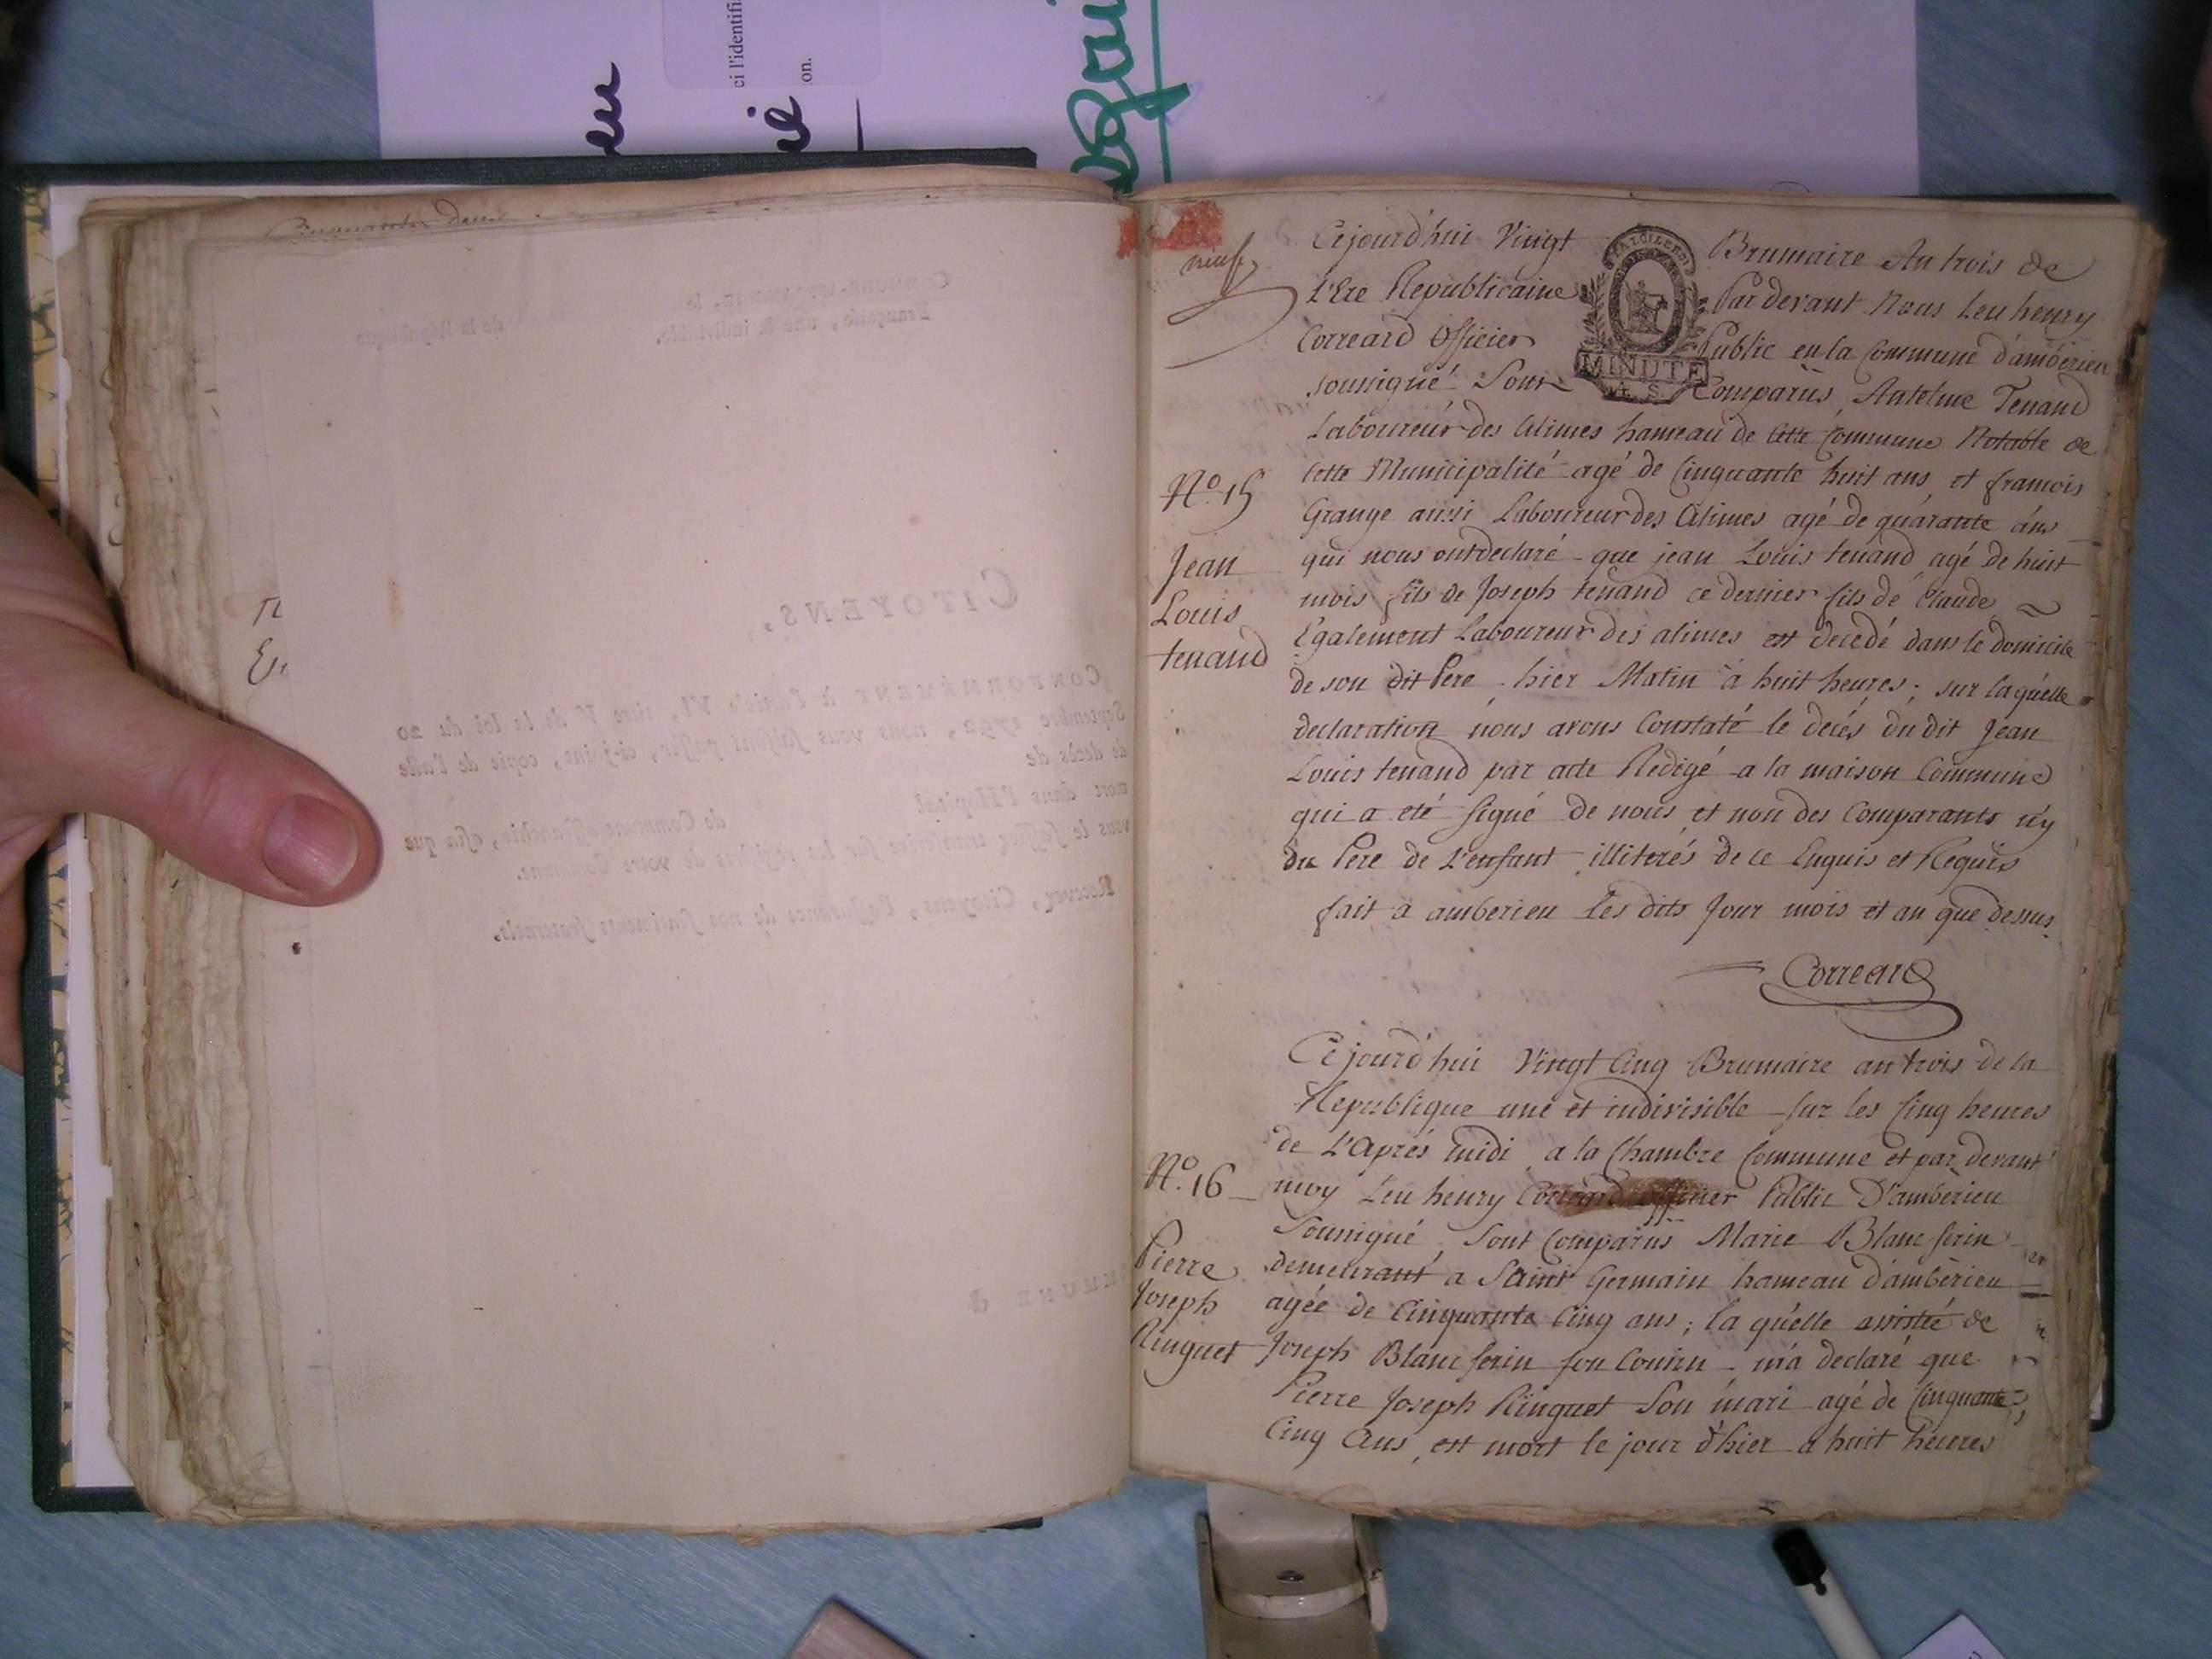 ci l'identifi
on.
neuf
Cejourd'hui Vingt Brumaire An trois de
L'Ere Republicaine Par devant Nous Leu henry
Correard Officier Public en la Commune d'amberieu
soussigné Sont Comparüs Antelme Tenand
LA LOI LE ROI
MINUTE
4. S.
Laboureur des Alimes hameau de Cette Commune Notable de
cette Municipalité agé de Cinquante huit ans et francois
Grange aussi Laboureur des Alimes agé de quarante ans
qui nous ont declaré que jean Louis tenand agé de huit
mois fils de Joseph tenand ce dernier fils de Claude
Egalement Laboureur des alimes est decedé dans le domicile
de son dit Pere hier Matin à huit heures; sur laquelle
declaration nous avons Constaté le decés du dit Jean
Louis tenand par acte Redigé a la maison Commune
qui a eté signé de nous et non des Comparants n'y
du Pere de L'enfant illiterés de ce Enquis et Requis
fait a amberieu les dits Jour mois et an que dessus.
Correard
No. 15
Jean
Louis
tenand
Cejourd'hui Vingt Cinq Brumaire an trois de la
Republique une et indivisible sur les Cinq heures
de L'Aprés midi a la Chambre Commune et par devant
moy Leu henry Correard officier Public D'amberieu
Soussigné, Sont Comparüs Marie Blanc ferin
demeurant a Saint Germain hameau d'amberieu
agée de Cinquante Cinq ans; la quelle assistée de
Joseph Blanc ferin son Cousin m'a declaré que
Pierre Joseph Ringuet Son mari agé de Cinquante
Cinq Ans, est mort le jour d'hier a huit heures
No. 16
Pierre
Joseph
Ringuet
CITOYENS,
CONFORMÉMENT à l'article VI, titre V de la loi du 20
Septembre 1792, nous vous faisons passer, ci-joint, copie de l'acte
de décès de
mort dans l'Hôpital de Commune-affranchie, afin que
vous le fassiez transcrire sur les registres de votre Commune.
Recevez, Citoyens, l'assurance de nos sentiments fraternels.
Française, une & indivisible. de la République